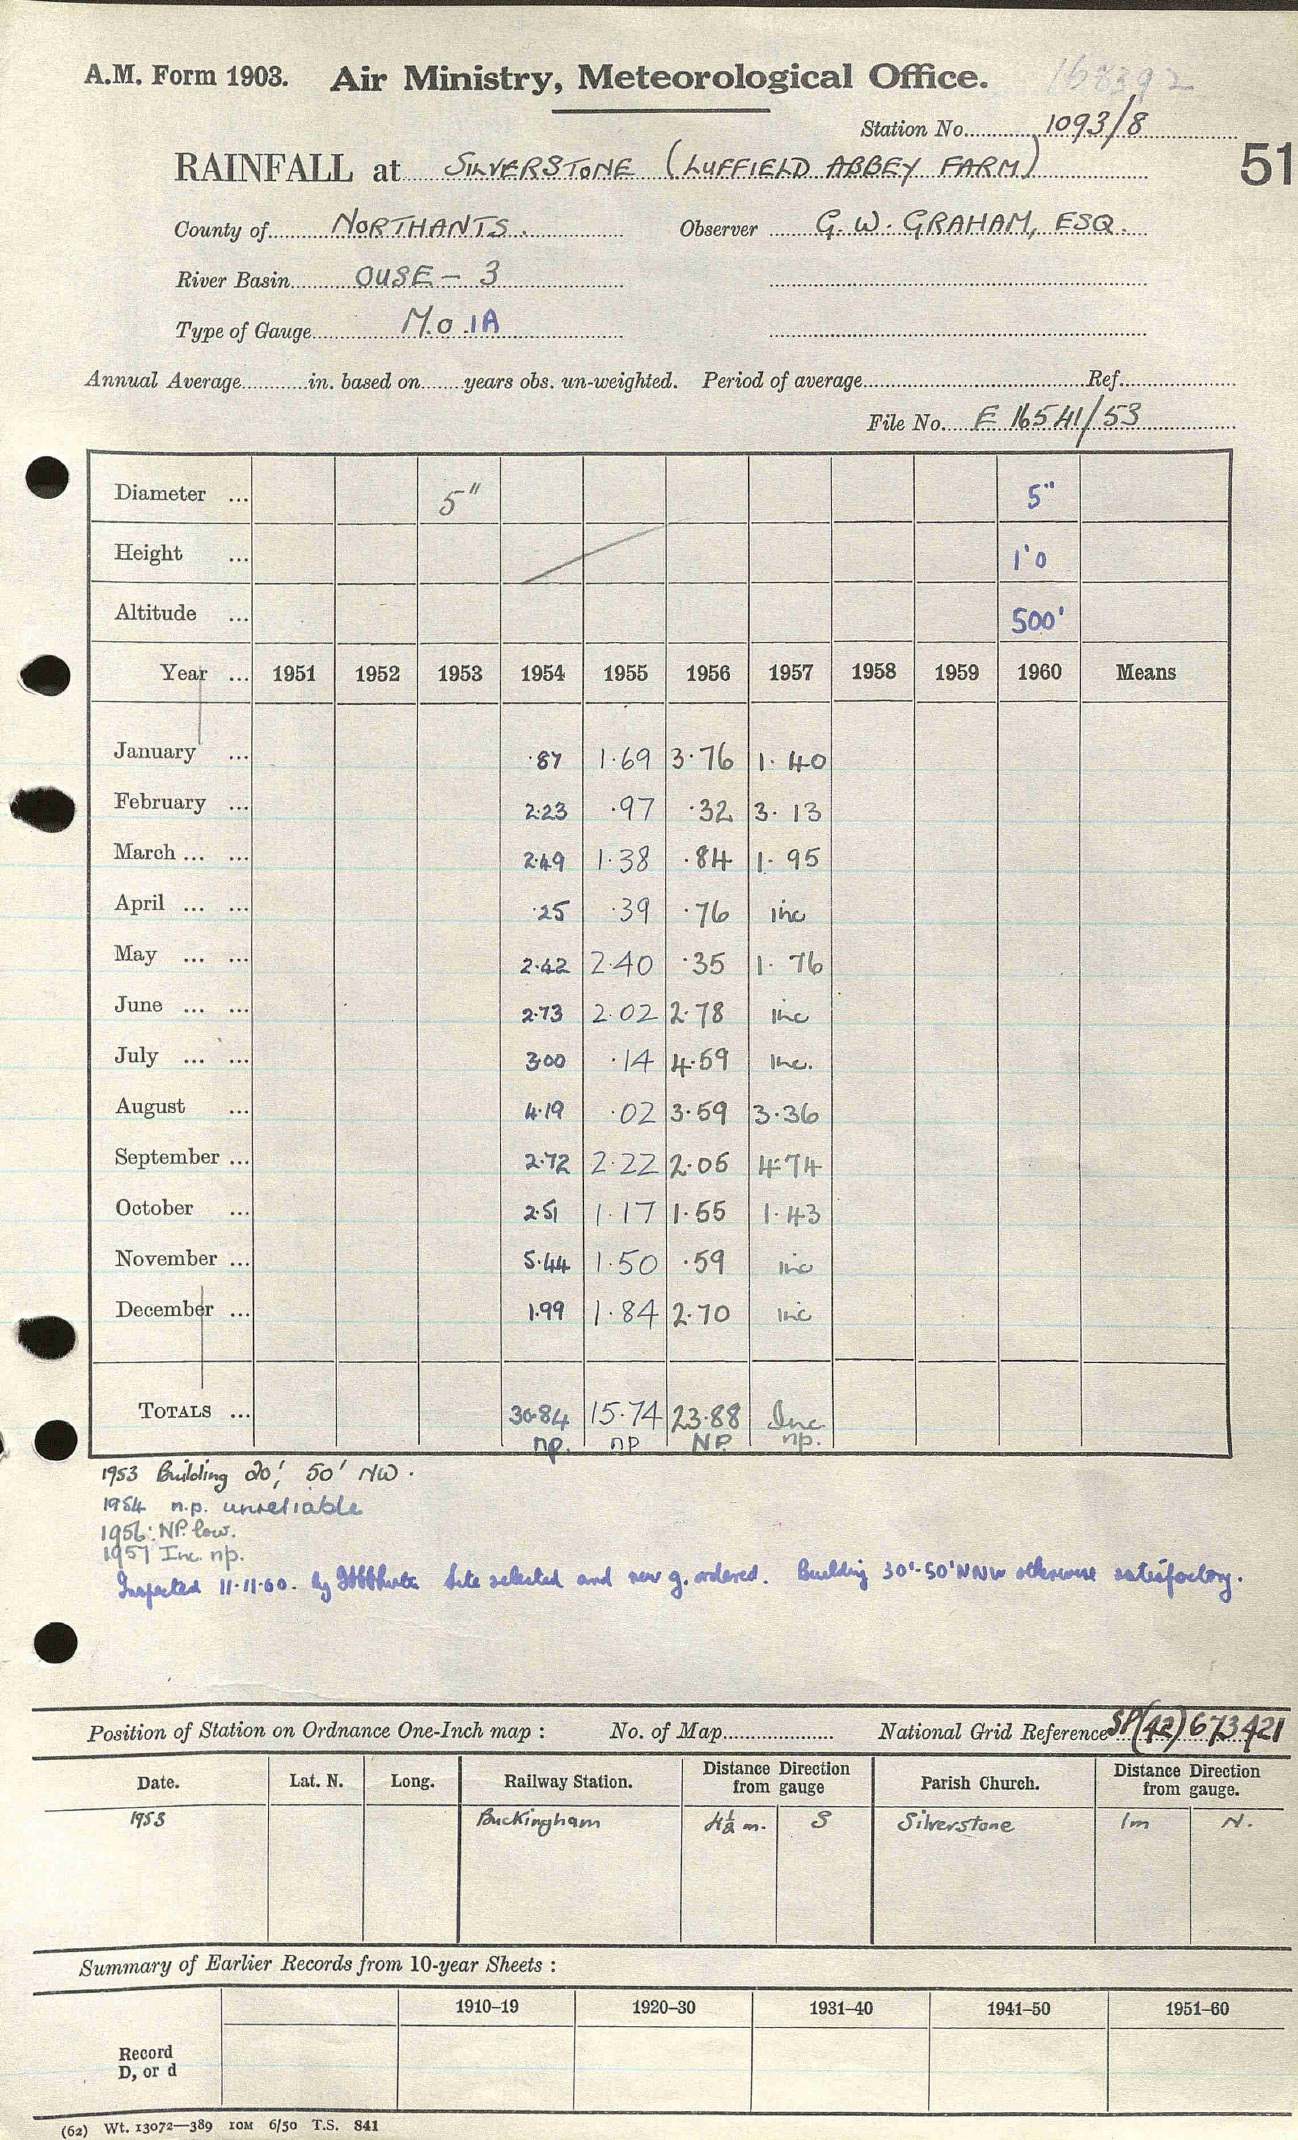 168392
A.M. Form 1903. Air Ministry, Meteorological Office.
Station No. 1093/8
51
RAINFALL at SILVERSTONE (LUFFIELD ABBEY FARM)
County of NORTHANTS. Observer G. W. GRAHAM, ESQ.
River Basin OUSE - 3
Type of Gauge M.O.1A
Annual Average in. based on years obs. un-weighted. Period of average Ref.
File No. E 16541/53
Diameter ... 5" 5"
Height ... 1'0
Altitude ... 500'
Year ... 1951 1952 1953 1954 1955 1956 1957 1958 1959 1960 Means
January ... ·87 1·69 3·76 1·40
February ... 2·23 ·97 ·32 3·13
March ... ... 2·49 1·38 ·84 1·95
April ... ... ·25 ·39 ·76 inc
May ... ... 2·42 2·40 ·35 1·76
June ... ... 2·73 2·02 2·78 inc
July ... ... 3·00 ·14 4·59 Inc.
August ... 4·19 ·02 3·59 3·36
September ... 2·72 2·22 2·05 4·74
October ... 2·51 1·17 1·55 1·43
November ... 5·44 1·50 ·59 inc
December ... 1·99 1·84 2·70 inc
TOTALS ... 30·84 15·74 23·88 Inc
np. np NP. np.
1953 Building 20', 50' NW.
1954 n.p. unreliable
1956: NP. low.
1957 Inc. np.
Inspected 11·11·60. by Site selected and new g. ordered. Building 30'-50' NNW otherwise satisfactory.
Position of Station on Ordnance One-Inch map : No. of Map National Grid Reference SP(42) 673421
Date. Lat. N. Long. Railway Station. Distance Direction from gauge Parish Church. Distance Direction from gauge.
1953 Buckingham 4½ m. S Silverstone 1m N.
Summary of Earlier Records from 10-year Sheets :
1910–19 1920–30 1931–40 1941–50 1951–60
Record
D, or d
(62) Wt. 13072—389 10M 6/50 T.S. 841